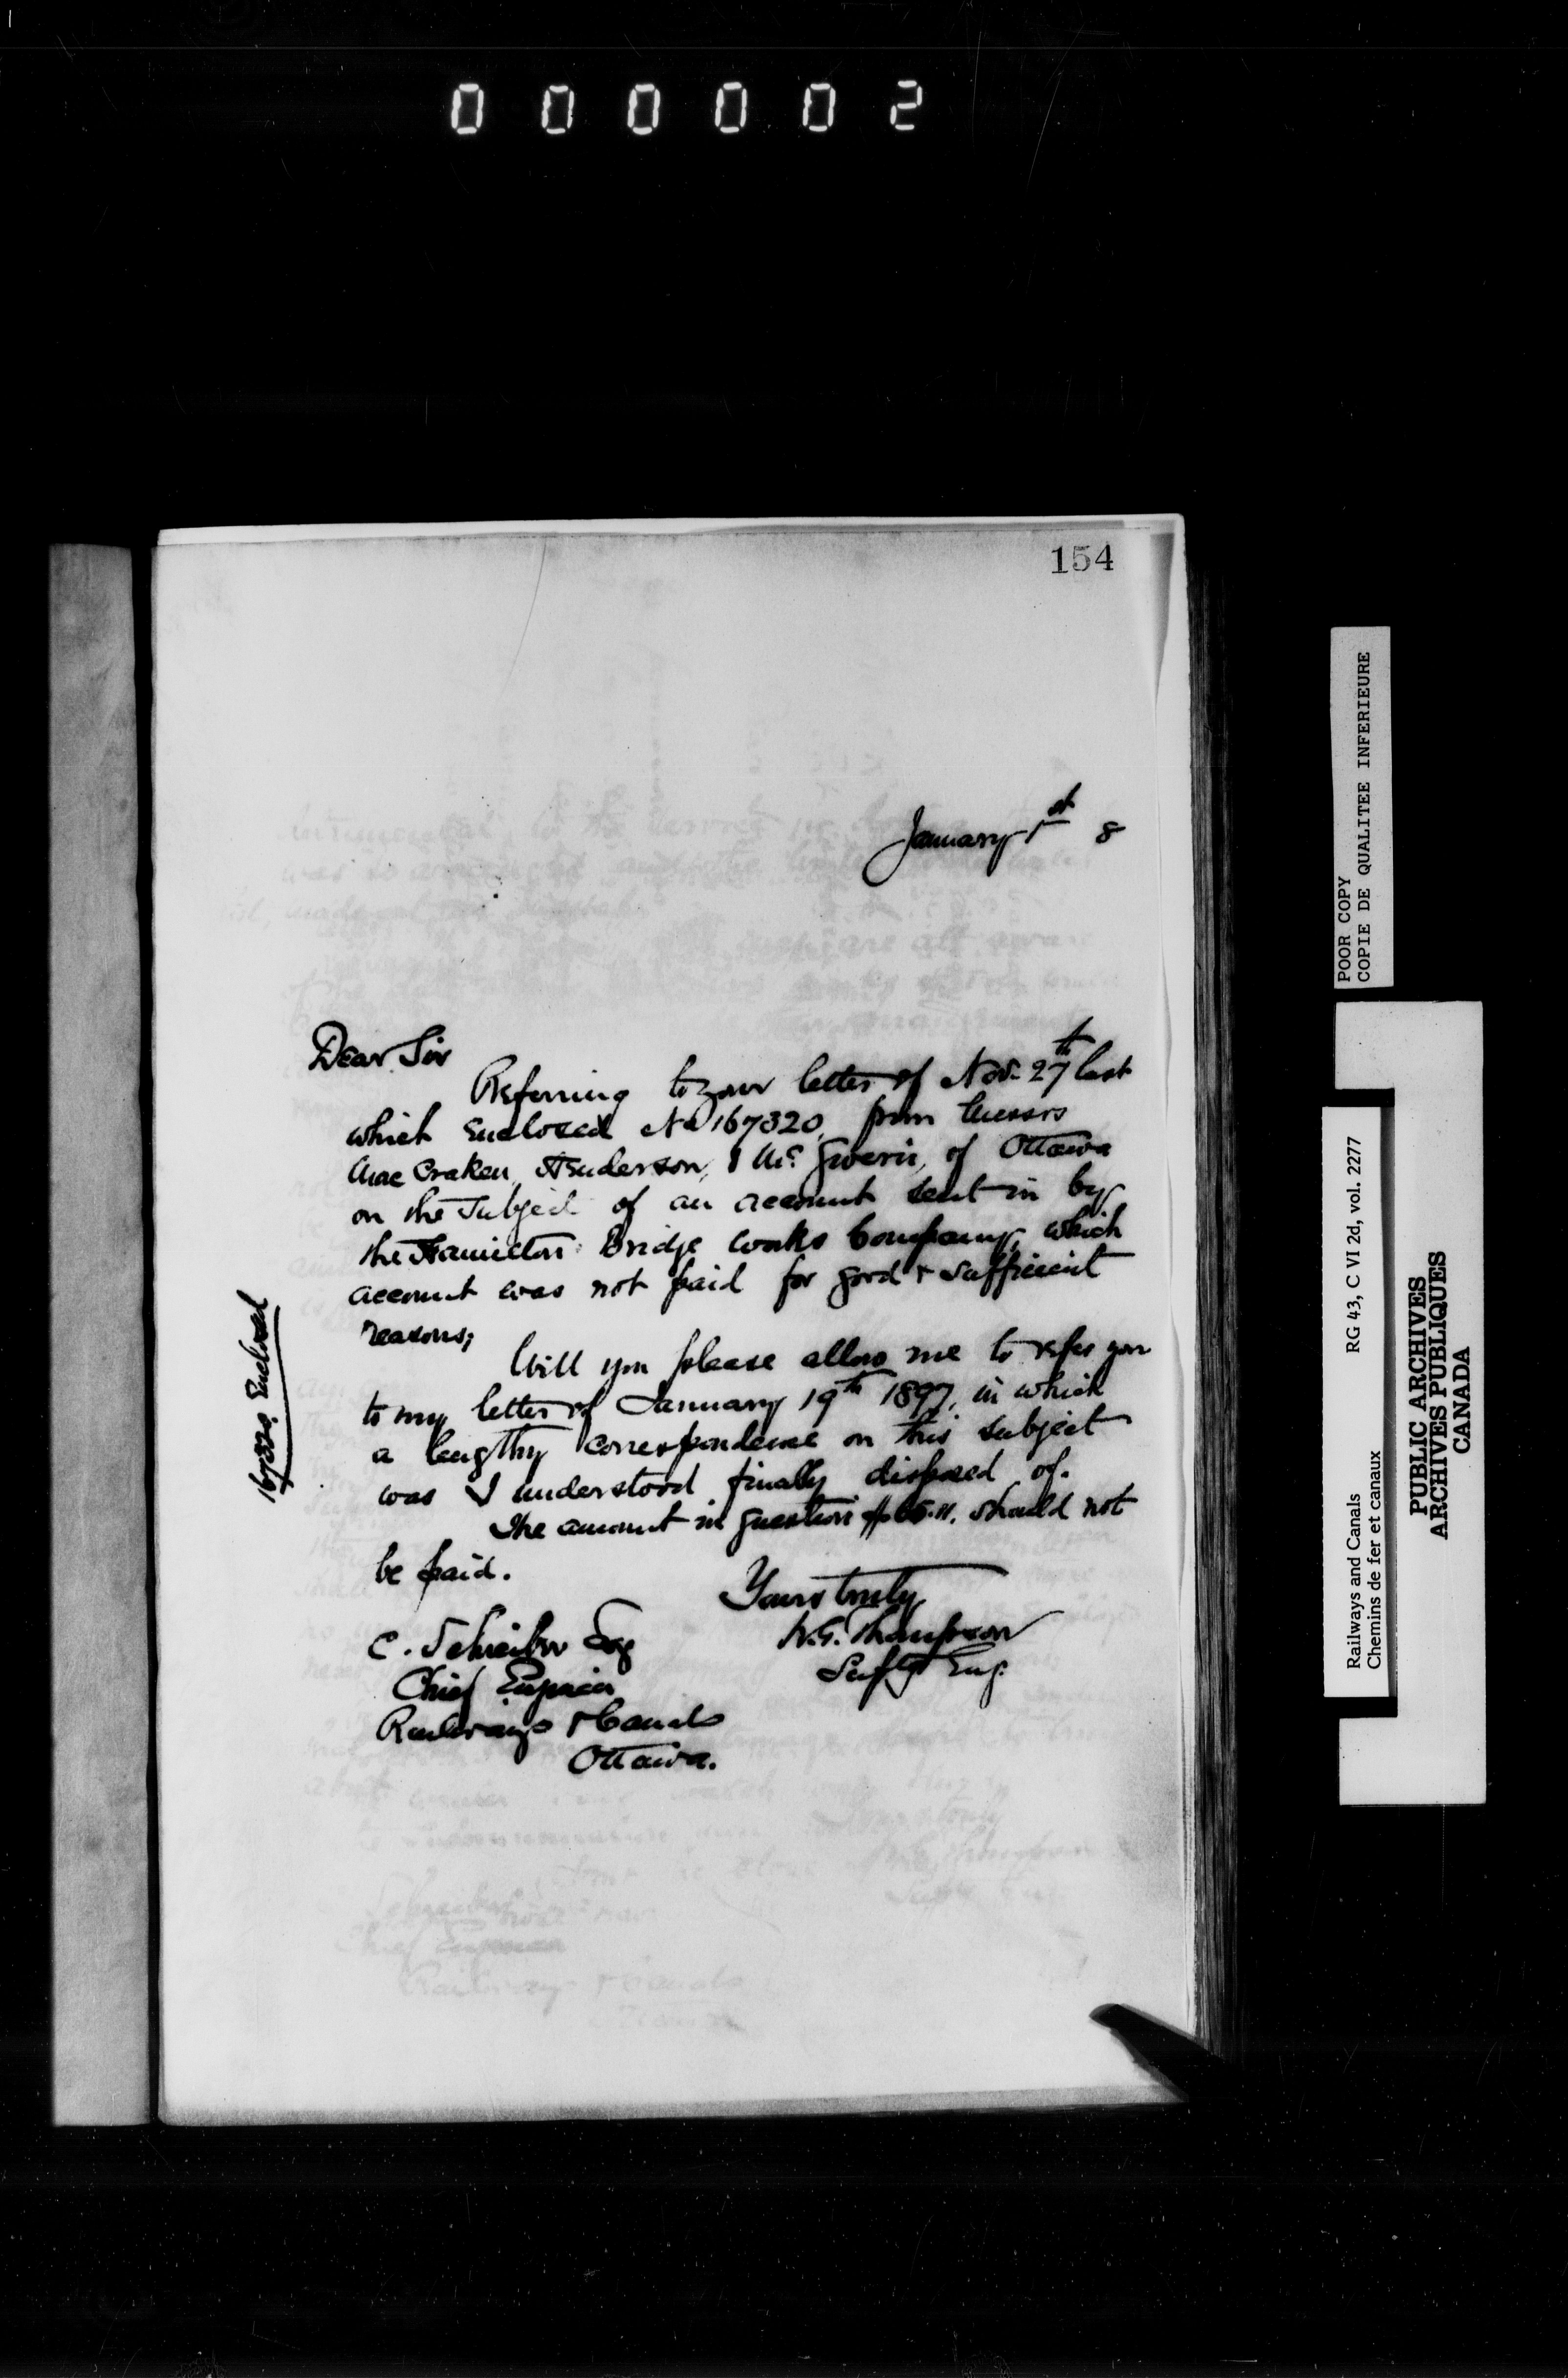 000002
154
January 1st 8
Dear Sir
Referring to your letter of Nov. 27th last
which Enclosed No 167320, from Messrs
Mac Craken, Henderson, & Mc. Giverin, of Ottawa
on the Subject of an account sent in by
the Hamilton Bridge Works Company, which
account was not paid for good & sufficient
reasons;
Will you please allow me to refer you
to my letter of January 19th 1897, in which
a lengthy correspondence on this subject
was I understood finally disposed of.
The amount in question should not
be paid.
Yours truly
W.G. Thompson
Supt Eng.
C. Schreiber Esq
Chief Engineer
Railways & Canals
Ottawa.
167320 Enclosed
POOR COPY
COPIE DE QUALITEE INFERIEURE
Railways and Canals RG 43, C VI 2d, vol. 2277
Chemins de fer et canaux
PUBLIC ARCHIVES
ARCHIVES PUBLIQUES
CANADA